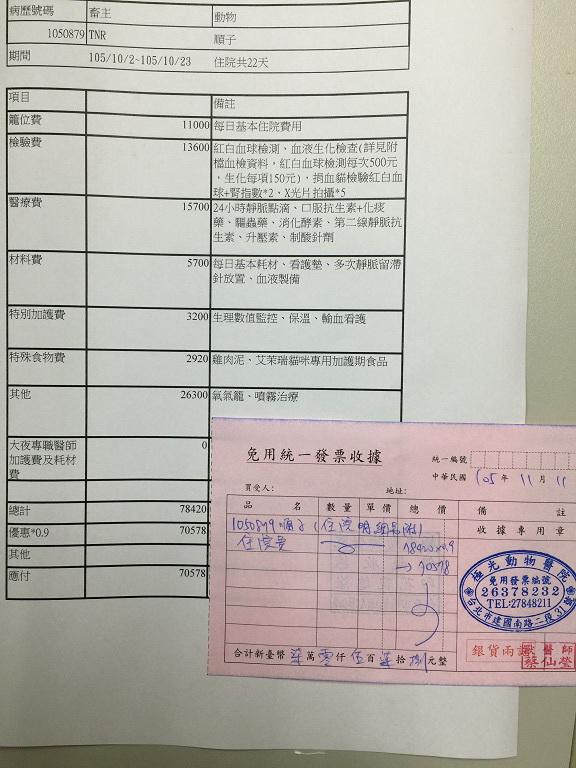 病歷號碼 畜主 動物
1050879 TNR 順子
期間 105/10/2~105/10/23 住院共22天
項目 備註
籠位費 11000 每日基本住院費用
檢驗費 13600 紅白血球檢測、血液生化檢查(詳見附
檔血檢資料，紅白血球檢測每次500元
，生化每項150元)，捐血貓檢驗紅白血
球+腎指數*2、X光片拍攝*5
醫療費 15700 24小時靜脈點滴、口服抗生素+化痰
藥、驅蟲藥、消化酵素、第二線靜脈抗
生素、升壓素、制酸針劑
材料費 5700 每日基本耗材、看護墊、多次靜脈留滯
針放置、血液製備
特別加護費 3200 生理數值監控、保溫、輸血看護
特殊食物費 2920 雞肉泥、艾茉瑞貓咪專用加護期食品
其他 26300 氧氣籠、噴霧治療
大夜專職醫師 0
加護費及耗材
費
總計 78420
優惠*0.9 70578
其他
應付 70578
免用統一發票收據
統一編號
中華民國 105 年 11 月 11
買受人： 地址：
品名 數量 單價 總價 備註
1050879 順子 (住院明細如附) 78420x0.9 收據專用章
住院費 →70578
極光動物醫院
免用發票編號
26378232
TEL:27848211
台北市建國南路二段31號
合計新臺幣 柒 萬 零 仟 伍 百 柒 拾 捌 元整
銀貨兩訖
獸醫師
蔡仙瑩